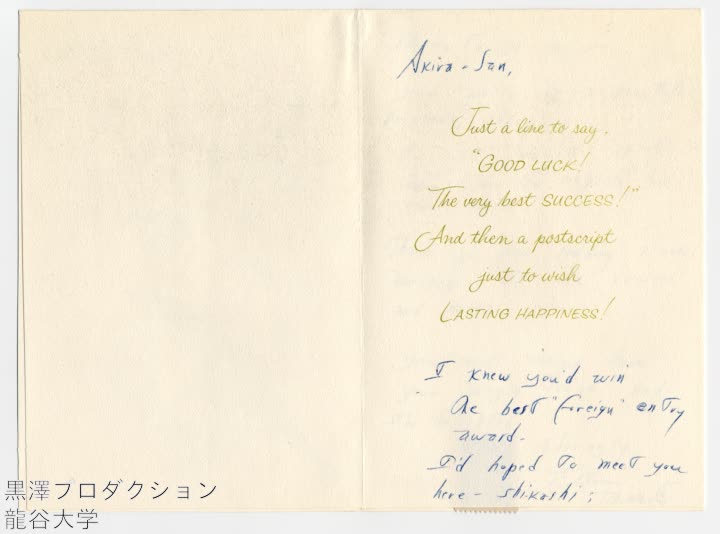 Akira-San,
Just a line to say.
"GOOD LUCK!
The very best SUCCESS!"
And then a postscript
just to wish
LASTING HAPPINESS!
I knew you'd win
the best "foreign" entry
award-
I'd hoped to meet you
here - shikashi:
黒澤プロダクション
龍谷大学